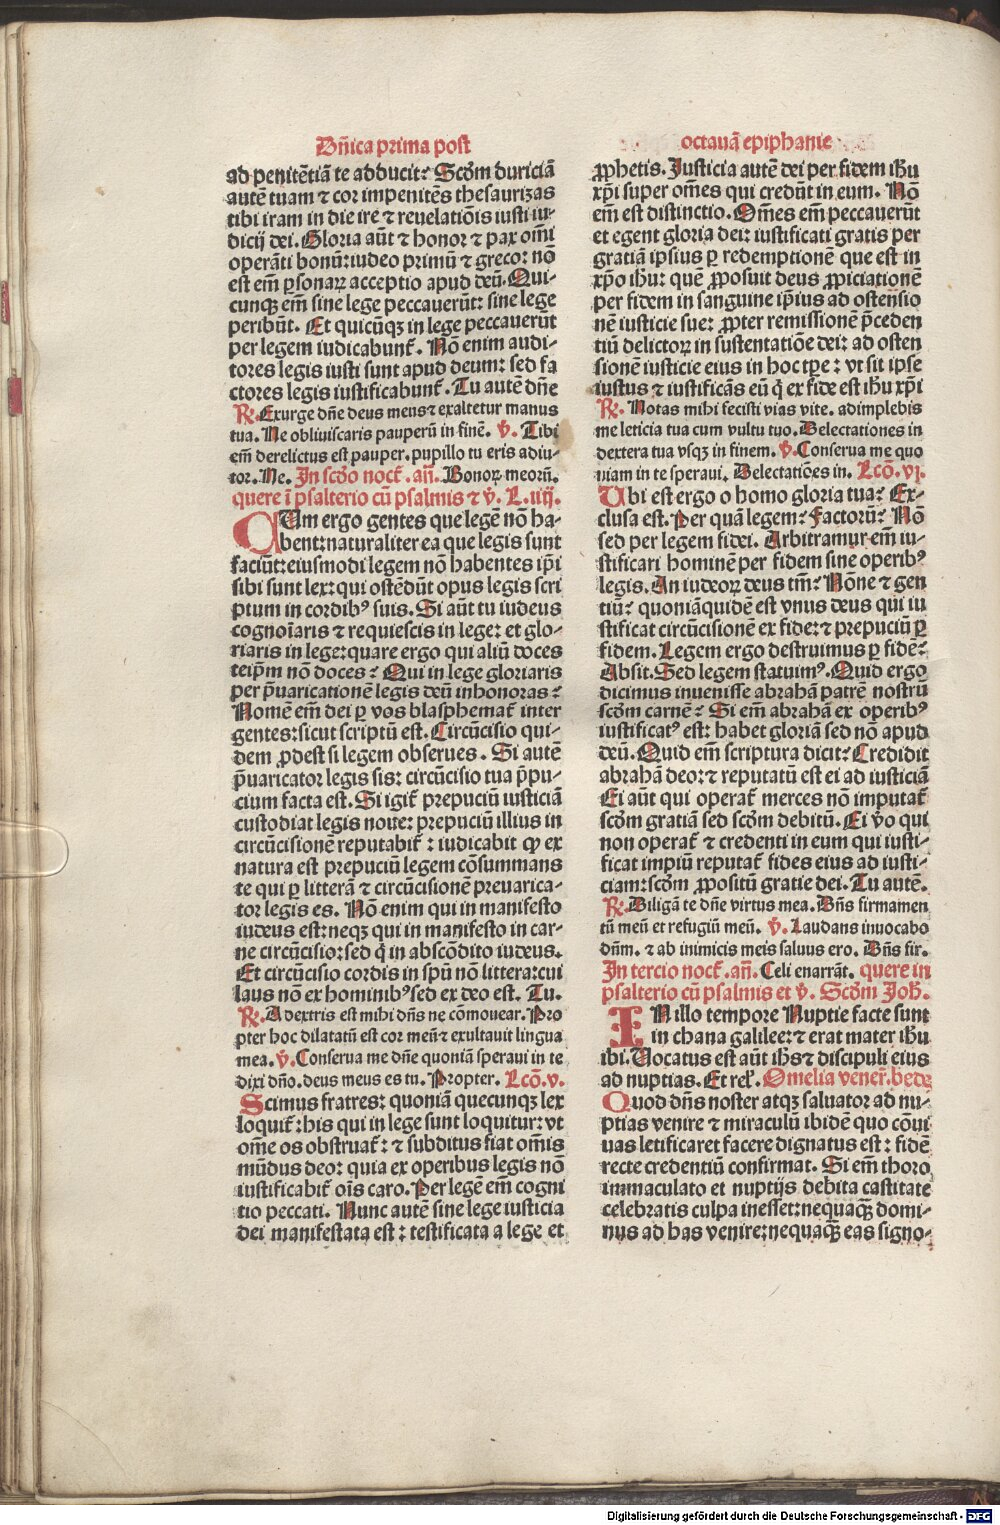 Dn̄ica prima post
ad penitētiā te adducit: Scd̄m duriciā
autē tuam ⁊ cor impenitēs thesaurizas
tibi iram in die ire ⁊ reuelatiōis iusti iu-
dicij dei. Gloria aūt ⁊ honor ⁊ pax om̄i
operāti bonū: iudeo primū ⁊ greco: nō
est em̄ ꝑsonaꝝ acceptio apud deū. Qui-
cunqꝫ em̄ sine lege peccauerūt: sine lege
peribūt. Et quicūqꝫ in lege peccauerūt
per legem iudicabunt̄. Nō enim audi-
tores legis iusti sunt apud deum: sed fa
ctores legis iustificabunt̄. Tu autē dn̄e
℟. Exurge dn̄e deus meus ⁊ exaltetur manus
tua. Ne obliuiscaris pauperū in finē. ℣. Tibi
em̄ derelictus est pauper. pupillo tu eris adiu-
tor. Ne. In scd̄o noct̄. an̄. Bonoꝝ meorū.
quere ī psalterio cū psalmis ⁊ ℣. L. iiij.
CUm ergo gentes que legē nō ha-
bent: naturaliter ea que legis sunt
faciūt: eiusmodi legem nō habentes ip̄i
sibi sunt lex: qui ostēdūt opus legis scri
ptum in cordibꝰ suis. Si aūt tu iudeus
cognoīaris ⁊ requiescis in lege: et glo-
riaris in lege: quare ergo qui aliū doces
teip̄m nō doces? Qui in lege gloriaris
per p̄uaricationē legis deū inhonoras?
Nomē em̄ dei ꝑ vos blasphemat̄ inter
gentes: sicut scriptū est. Circūcisio qui-
dem ꝓdest si legem obserues. Si autē
p̄uaricator legis sis: circūcisio tua p̄pu-
cium facta est. Si igit̄ prepuciū iusticiā
custodiat legis noue: prepuciū illius in
circūcisionē reputabit̄: iudicabit qꝫ ex
natura est prepuciū legem cōsummans
te qui ꝑ litterā ⁊ circūcisionē preuarica-
tor legis es. Nō enim qui in manifesto
iudeus est: neqꝫ qui in manifesto in car-
ne circūcisio: sed q̄ in abscōdito iudeus.
Et circūcisio cordis in spū nō littera: cui
laus nō ex hominibꝰ sed ex deo est. Tu.
℟. A dextris est mihi dn̄s ne cōmouear. Pro
pter hoc dilatatū est cor meū ⁊ exultauit lingua
mea. ℣. Conserua me dn̄e quoniā speraui in te
dixi dn̄o. deus meus es tu. Propter. Lcō. v.
Scimus fratres: quoniā quecunqꝫ lex
loquit̄: his qui in lege sunt loquitur: vt
om̄e os obstruat̄: ⁊ subditus fiat om̄is
mūdus deo: quia ex operibus legis nō
iustificabit̄ oīs caro. Per legē em̄ cogni
tio peccati. Nunc autē sine lege iusticia
dei manifestata est: testificata a lege et
octauā epiphanie
ꝓphetis. Iusticia autē dei per fidem ih̄u
xp̄i super om̄es qui credūt in eum. Nō
em̄ est distinctio. Om̄es em̄ peccauerūt
et egent gloria dei: iustificati gratis per
gratiā ipsius ꝑ redemptionē que est in
xp̄o ih̄u: quē ꝓposuit deus ꝓpiciationē
per fidem in sanguine ip̄ius ad ostensio
nē iusticie sue: ꝓpter remissionē p̄ceden
tiū delictoꝝ in sustentatiōe dei: ad osten
sionē iusticie eius in hoc tp̄e: vt sit ipse
iustus ⁊ iustificās eū q̄ ex fide est ih̄u xp̄i
℟. Notas mihi fecisti vias vite. adimplebis
me leticia tua cum vultu tuo. Delectationes in
dextera tua vsqꝫ in finem. ℣. Conserua me quo
niam in te speraui. Delectatiōes in. Lcō. vj.
Ubi est ergo o homo gloria tua? Ex-
clusa est. Per quā legem? Factorū? Nō
sed per legem fidei. Arbitramur em̄ iu-
stificari hominē per fidem sine operibꝰ
legis. An iudeoꝝ deus tm̄? Nōne ⁊ gen
tiū? quoniāquidē est vnus deus qui iu
stificat circūcisionē ex fide: ⁊ prepuciū ꝑ
fidem. Legem ergo destruimus ꝑ fidē?
Absit. Sed legem statuimꝰ. Quid ergo
dicimus inuenisse abrahā patrē nostrū
scd̄m carnē? Si em̄ abrahā ex operibꝰ
iustificatꝰ est: habet gloriā sed nō apud
deū. Quid em̄ scriptura dicit? Credidit
abrahā deo: ⁊ reputatū est ei ad iusticiā
Ei aūt qui operat̄ merces nō imputat̄
scd̄m gratiā sed scd̄m debitū. Ei v̄o qui
non operat̄ ⁊ credenti in eum qui iusti-
ficat impiū reputat̄ fides eius ad iusti-
ciam: scd̄m ꝓpositū gratie dei. Tu autē.
℟. Diligā te dn̄e virtus mea. Dn̄s firmamen
tū meū et refugiū meū. ℣. Laudans inuocabo
dn̄m. ⁊ ab inimicis meis saluus ero. Dn̄s fir.
In tercio noct̄. an̄. Celi enarrāt. quere in
psalterio cū psalmis et ℣. Scd̄m Joh̄.
IN illo tempore Nuptie facte sunt
in chana galilee: ⁊ erat mater ih̄u
ibi. Vocatus est aūt ih̄s ⁊ discipuli eius
ad nuptias. Et rel̄. Omelia vener̄. bede
Quod dn̄s noster atqꝫ saluator ad nu-
ptias venire ⁊ miraculū ibidē quo cōui
uas letificaret facere dignatus est: fidē
recte credentiū confirmat. Si em̄ thoro
immaculato et nuptijs debita castitate
celebratis culpa inesset: nequaqꝫ domi-
nus ad has venire: nequaqꝫ eas signo-
Digitalisierung gefördert durch die Deutsche Forschungsgemeinschaft - DFG